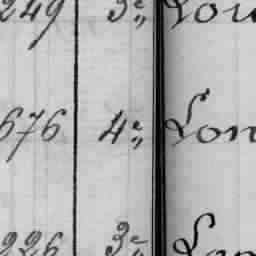 249 3e„ Lon
676 4e„ Lon
226 3e„ Lon